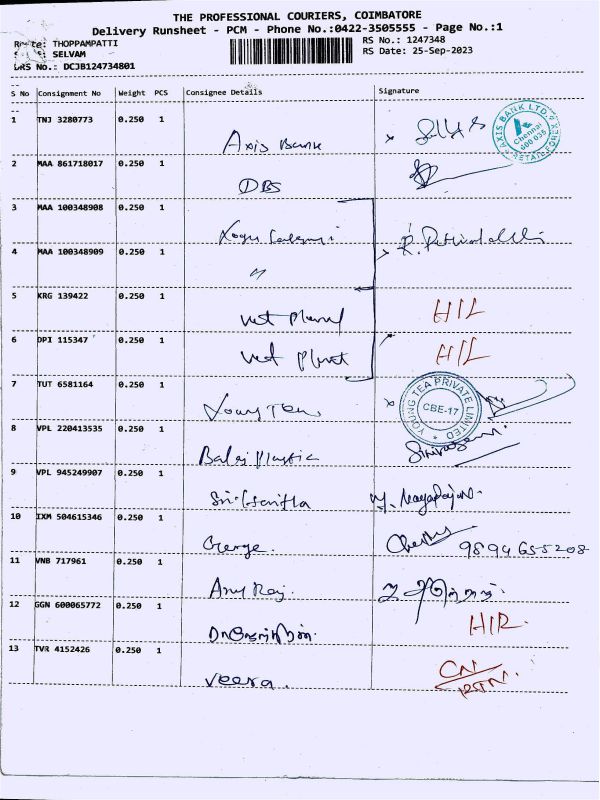 THE PROFESSIONAL COURIERS, COIMBATORE
Delivery Runsheet - PCM - Phone No.:0422-3505555 - Page No.:1
Route: THOPPAMPATTI
SELVAM
DRS No.: DCJB124734801
RS No.: 1247348
RS Date: 25-Sep-2023
S No Consignment No Weight PCS Consignee Details Signature
1 TNJ 3280773 0.250 1
Axis Bank
AXIS BANK LTD. Chennai 600 035 RETAIL FOREX
2 MAA 861718017 0.250 1
DBS
3 MAA 100348908 0.250 1
4 MAA 100348909 0.250 1
"
5 KRG 139422 0.250 1
Vet Planet H/L
6 DPI 115347 0.250 1
Vet Planet H/L
7 TUT 6581164 0.250 1
Young Tea
YOUNG TEA PRIVATE LIMITED CBE-17
8 VPL 220413535 0.250 1
Balaji Plastic Srinivasan.
9 VPL 945249907 0.250 1
10 IXM 504615346 0.250 1
George. 9894655208
11 VNB 717961 0.250 1
Arul Raj.
12 GGN 600065772 0.250 1
H/R.
13 TVR 4152426 0.250 1
Veera. CN/